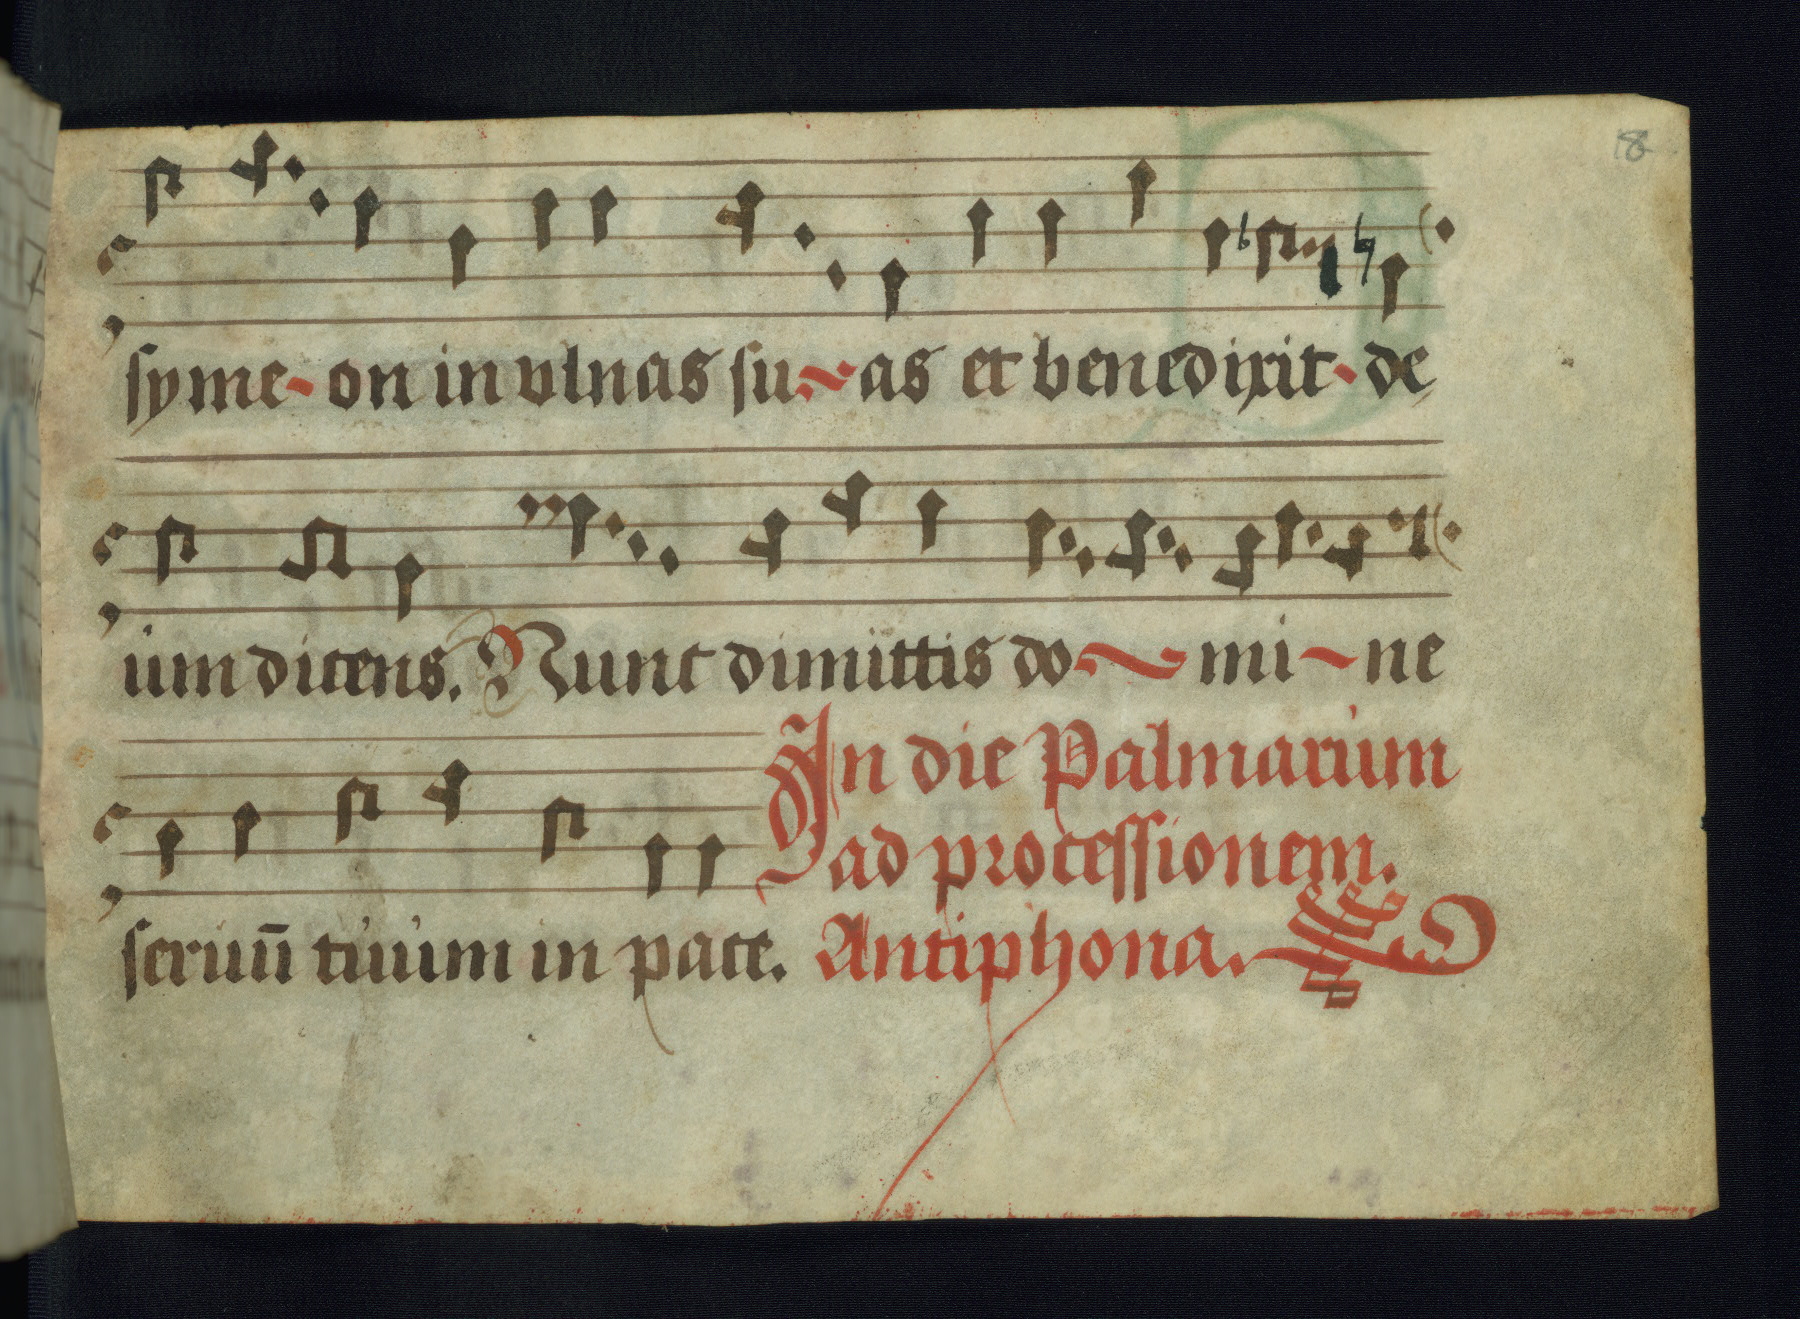 8
syme-on in vlnas su~as et benedixit-de
um dicens. Nunc dimittis do~mi~ne
In die Palmarum
ad processionem.
seruū tuum in pace. Antiphona.